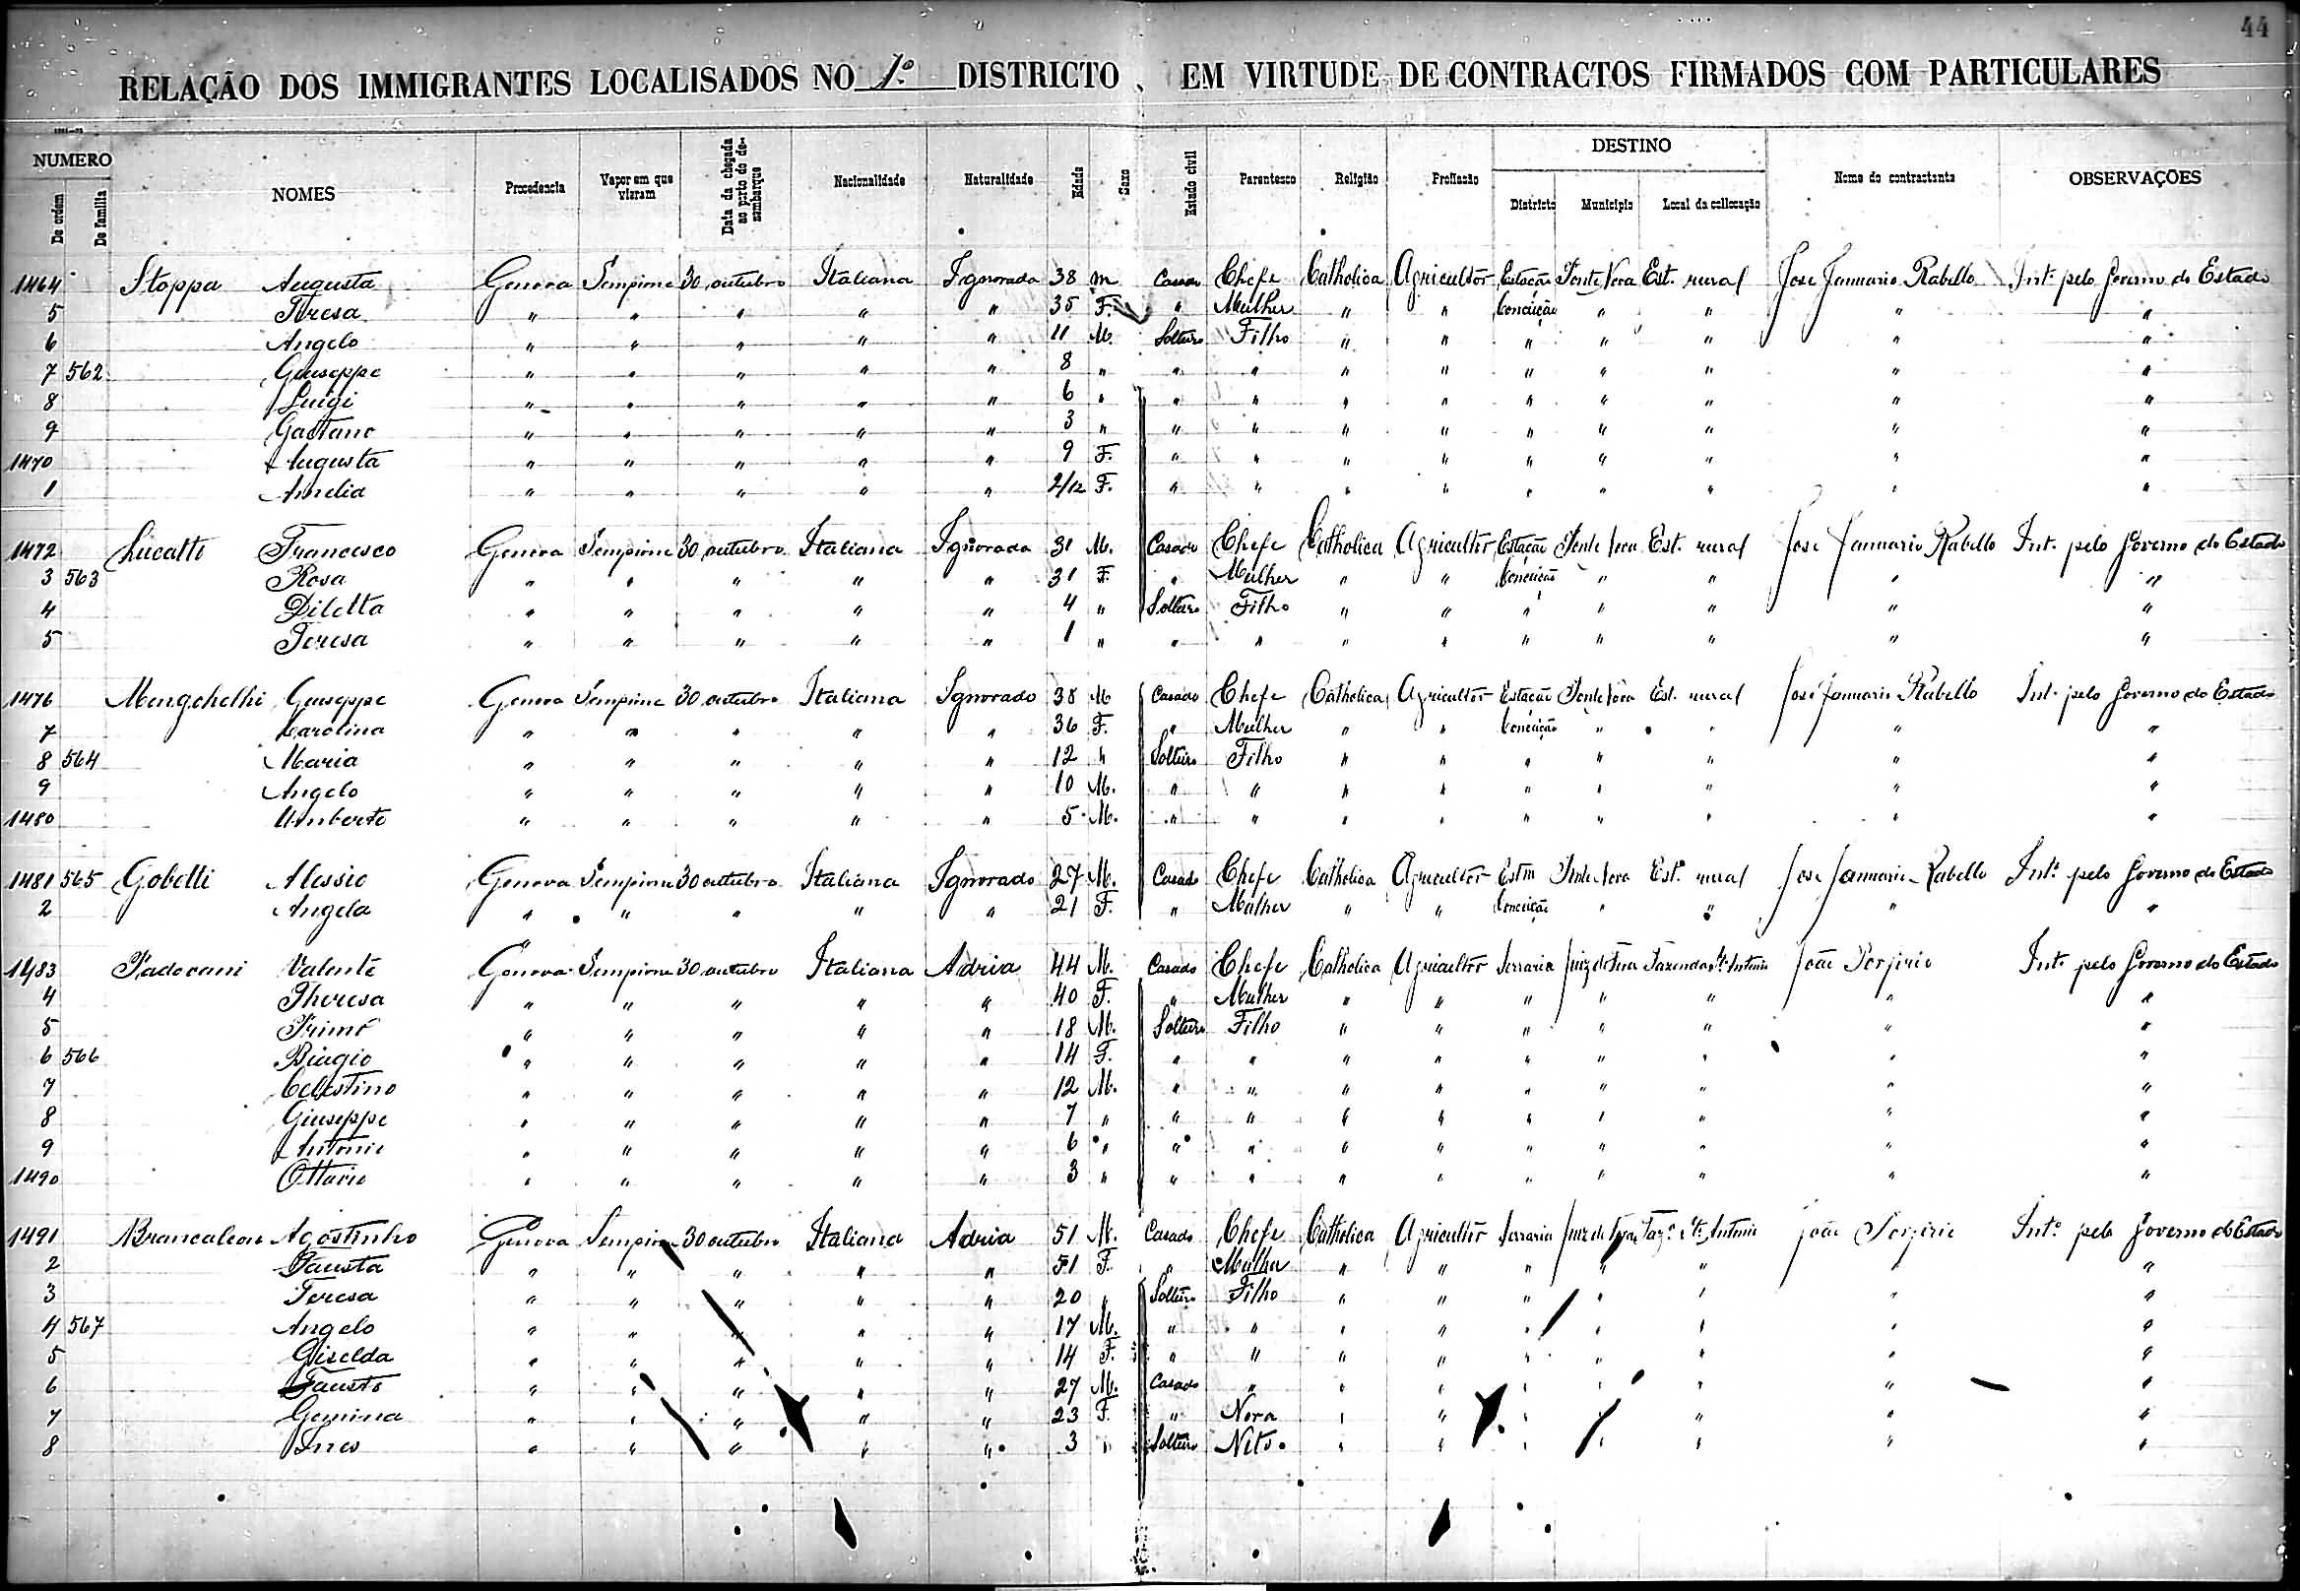 44
RELAÇÃO DOS IMMIGRANTES LOCALISADOS NO 1º DISTRICTO, EM VIRTUDE DE CONTRACTOS FIRMADOS COM PARTICULARES
NUMERO DESTINO
De ordem De familia NOMES Procedencia Vapor em que vieram Data da chegada ao porto do desembarque Nacionalidade Naturalidade Edade Sexo Estado civil Parentesco Religião Profissão Districto Municipio Local da collocação Nome do contractante OBSERVAÇÕES
1464 Stoppa Augusta Genova Sempione 30 outubro Italiana Ignorada 38 M Casado Chefe Catholica Agricultôr Estação Ponte Nova Est. rural José Januario Rabello Int. pelo Governo do Estado
5 Teresa " " " " " 35 F. " Mulher " " Conceição " " " "
6 Angelo " " " " " 11 M. Solteiro Filho " " " " " " "
7 562 Giuseppe " " " " " 8 " " " " " " " " " "
8 Luigi " " " " " 6 " " " " " " " " " "
9 Gaetano " " " " " 3 " " " " " " " " " "
1470 Augusta " " " " " 9 F. " " " " " " " " "
1 Amelia " " " " " 2/12 F. " " " " " " " " "
1472 Lucatti Francesco Genova Sempione 30 outubro Italiana Ignorado 31 M. Casado Chefe Catholica Agricultôr Estação Ponte Nova Est. rural José Januario Rabello Int. pelo Governo do Estado
3 563 Rosa " " " " " 31 F. " Mulher " " Conceição " " " "
4 Diletta " " " " " 4 " Solteiro Filho " " " " " " "
5 Teresa " " " " " 1 " " " " " " " " " "
1476 Mengchelhi Giuseppe Genova Sempione 30 outubro Italiana Ignorado 38 M Casado Chefe Catholica Agricultôr Estação Ponte Nova Est. rural José Januario Rabello Int. pelo Governo do Estado
7 Carolina " " " " " 36 F. " Mulher " " Conceição " " " "
8 564 Maria " " " " " 12 " Solteiro Filho " " " " " " "
9 Angelo " " " " " 10 M. " " " " " " " " "
1480 Umberto " " " " " 5 M. " " " " " " " " "
1481 565 Gobetti Alessio Genova Sempione 30 outubro Italiana Ignorado 27 M. Casado Chefe Catholica Agricultôr Estm Ponte Nova Est. rural José Januario Rabello Int. pelo Governo do Estado
2 Angela " " " " " 21 F. " Mulher " " Conceição " " " "
1483 Padovani Valente Genova Sempione 30 outubro Italiana Adria 44 M. Casado Chefe Catholica Agricultôr Serraria Juiz de Fóra Fazenda Sto Antonio João Porfirio Int. pelo Governo do Estado
4 Theresa " " " " " 40 F. " Mulher " " " " " " "
5 Primo " " " " " 18 M. Solteiro Filho " " " " " " "
6 566 Biagio " " " " " 14 F. " " " " " " " " "
7 Celestino " " " " " 12 M. " " " " " " " " "
8 Giuseppe " " " " " 7 " " " " " " " " " "
9 Antonio " " " " " 6 " " " " " " " " " "
1490 Ottavio " " " " " 3 " " " " " " " " " "
1491 Brancaleon Agostinho Genova Sempione 30 outubro Italiana Adria 51 M. Casado Chefe Catholica Agricultôr Serraria Juiz de Fóra Faz. Sto. Antonio João Porfirio Int. pelo Governo do Estado
2 Fausta " " " " " 51 F. " Mulher " " " " " " "
3 Teresa " " " " " 20 " Solteiro Filho " " " " " " "
4 567 Angelo " " " " " 17 M. " " " " " " " " "
5 Giselda " " " " " 14 F. " " " " " " " " "
6 Fausto " " " " " 27 M. Casado " " " " " " " "
7 Gemina " " " " " 23 F. " Nora " " " " " " "
8 Ines " " " " " 3 " Solteiro Neto " " " " " " "